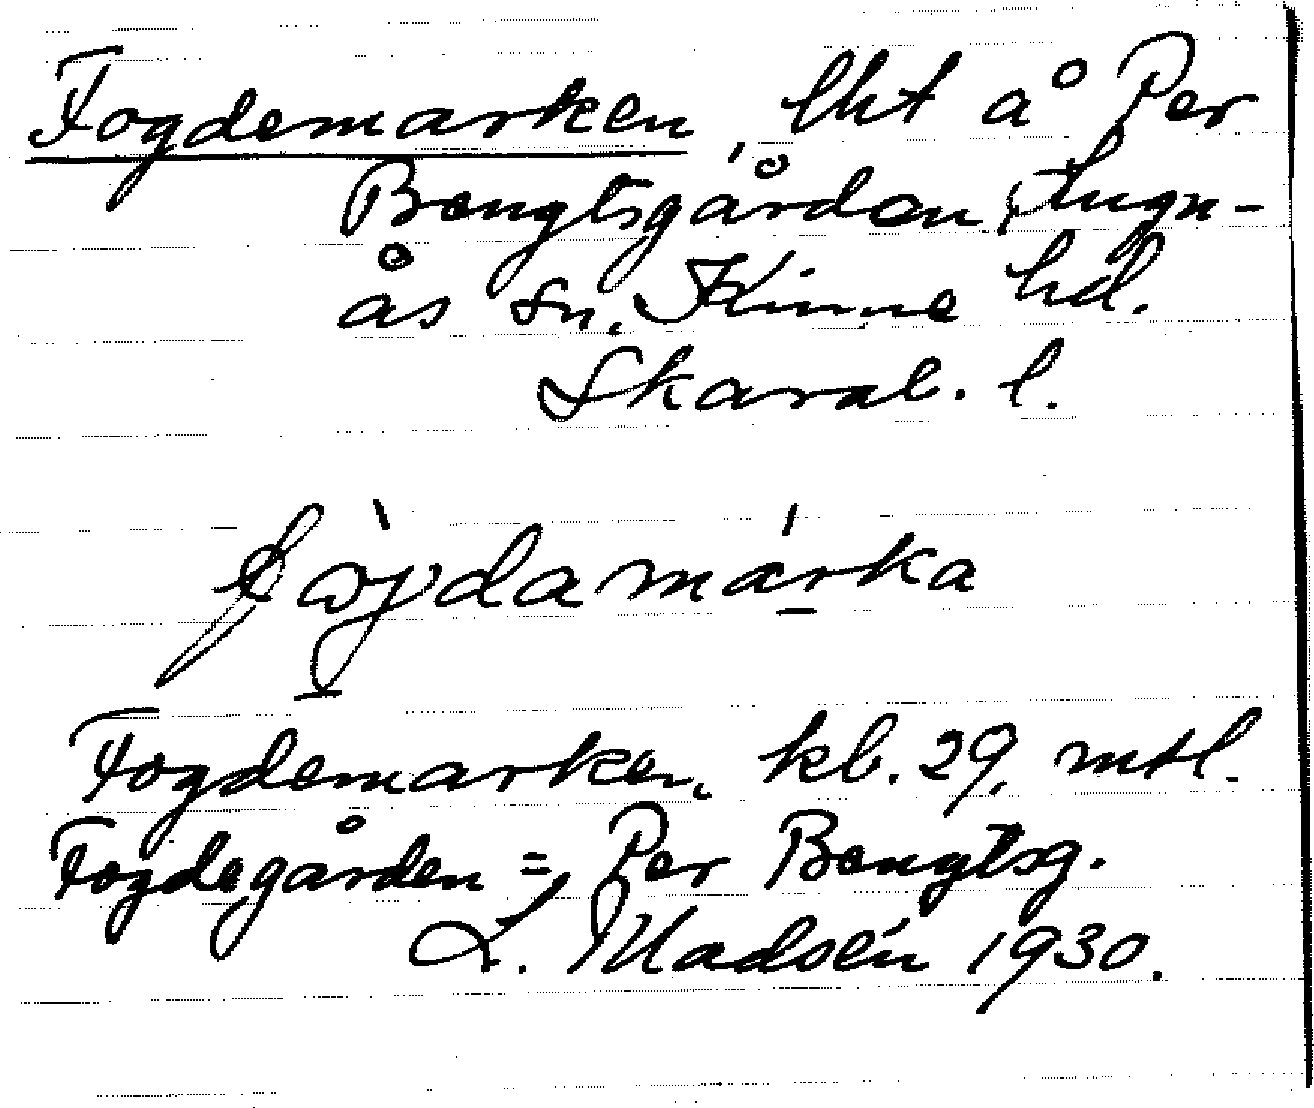 Fogdemarken lht å Per
Bengtsgården, Lugn-
ås sn. Kinne hd.
Skarab. l.
fὼjdamárka
Fogdemarken, kb. 29, mtl.
Fogdegården = Per Bengtsg.
L. Madsén 1930.